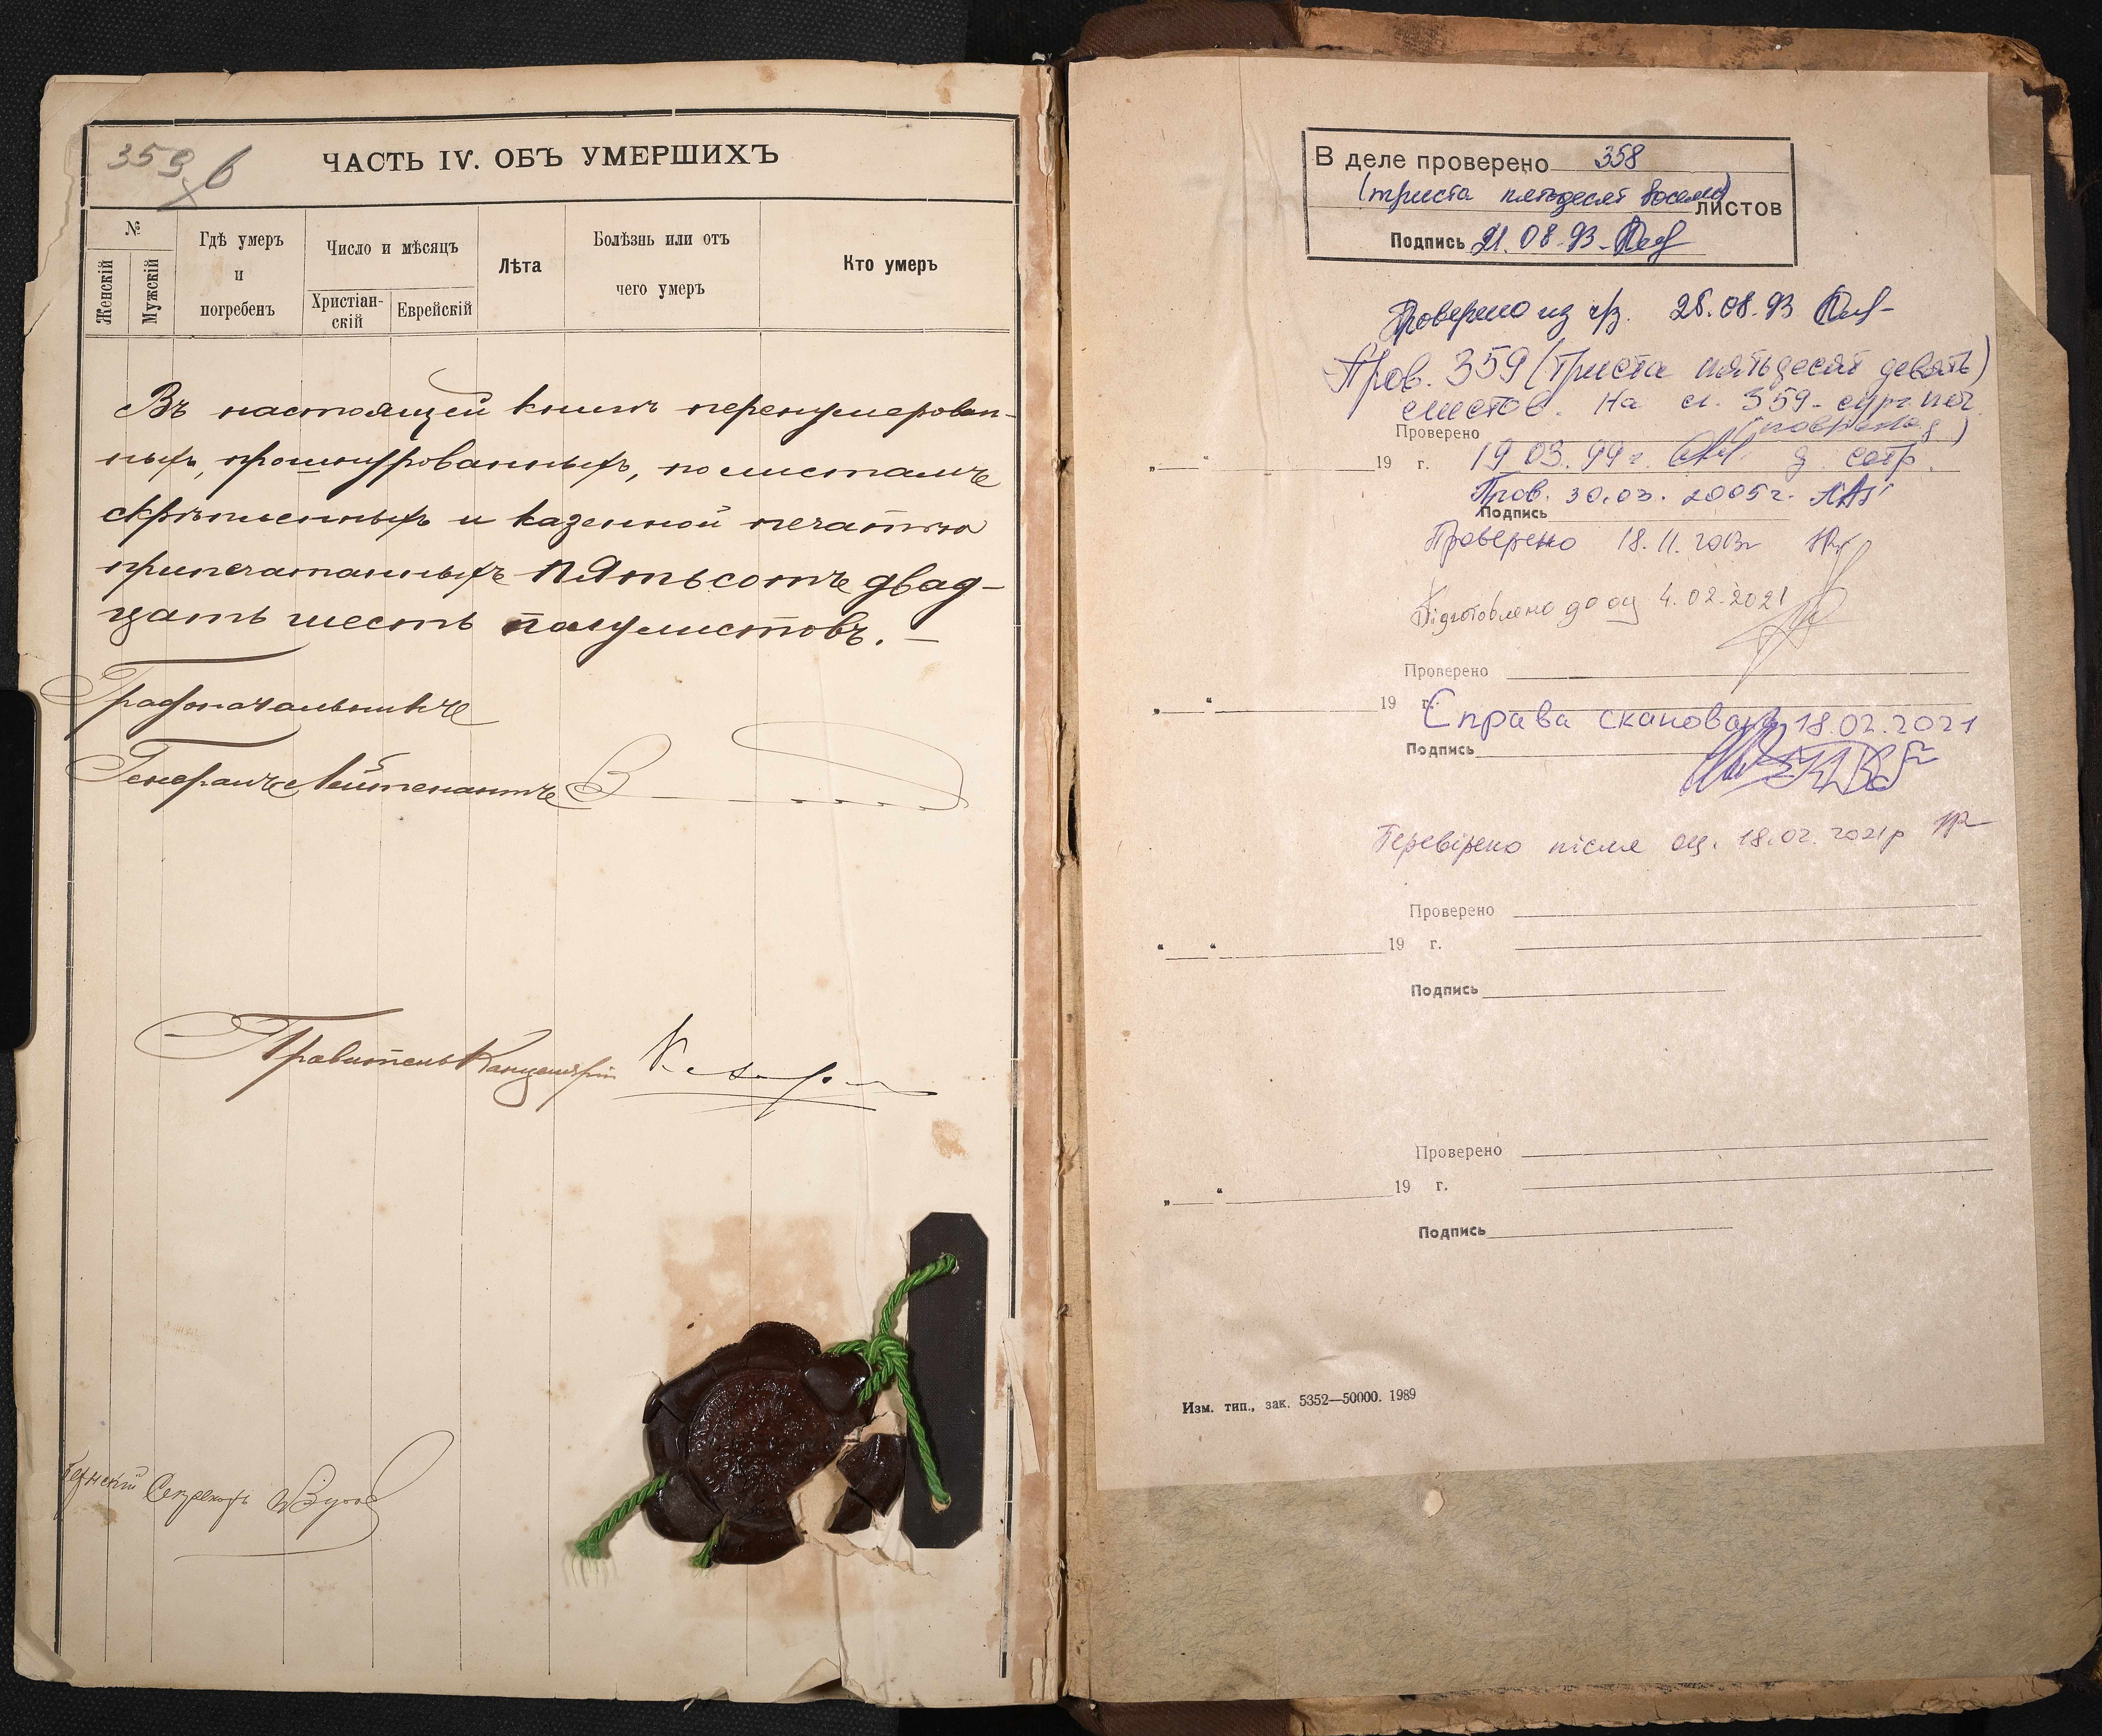 359 б
ЧАСТЬ IV. ОБЪ УМЕРШИХЪ
№
Женскій
Мужскій
Гдѣ умеръ
и
погребенъ
Число и мѣсяцъ
Христіан-
скій
Еврейскій
Лѣта
Болѣзнь или отъ
чего умеръ
Кто умеръ
Въ настоящей книгѣ перенумерован-
ныхъ, прошнурованныхъ, по листамъ
скрѣпленныхъ и казенной печатью
припечатанныхъ пятьсотъ двад-
цать шесть полулистовъ. —
Градоначальникъ
Генералъ Лейтенантъ
Правитель Канцеляріи
Секретарь
В деле проверено 358
(триста пятьдесят восемь)
листов
Подпись 21.08.93
Проверено из ч/з. 28.08.93
Пров. 359 (Триста пятьдесят девять)
листов. На л. 359 - сург. печ.
Проверено
„ “ 19 г. 19.03.99г.
Пров. 30.03. 2005г.
Подпись
Проверено 18.11.2013г
Підготовлено до оц 4.02.2021
Проверено
„ “ 19 г.
Справа сканована 18.02.2021
Подпись
Перевірено після оц. 18.02.2021р
Проверено
“ “ 19 г.
Подпись
Проверено
„ “ 19 г.
Подпись
Изм. тип., зак. 5352—50000. 1989